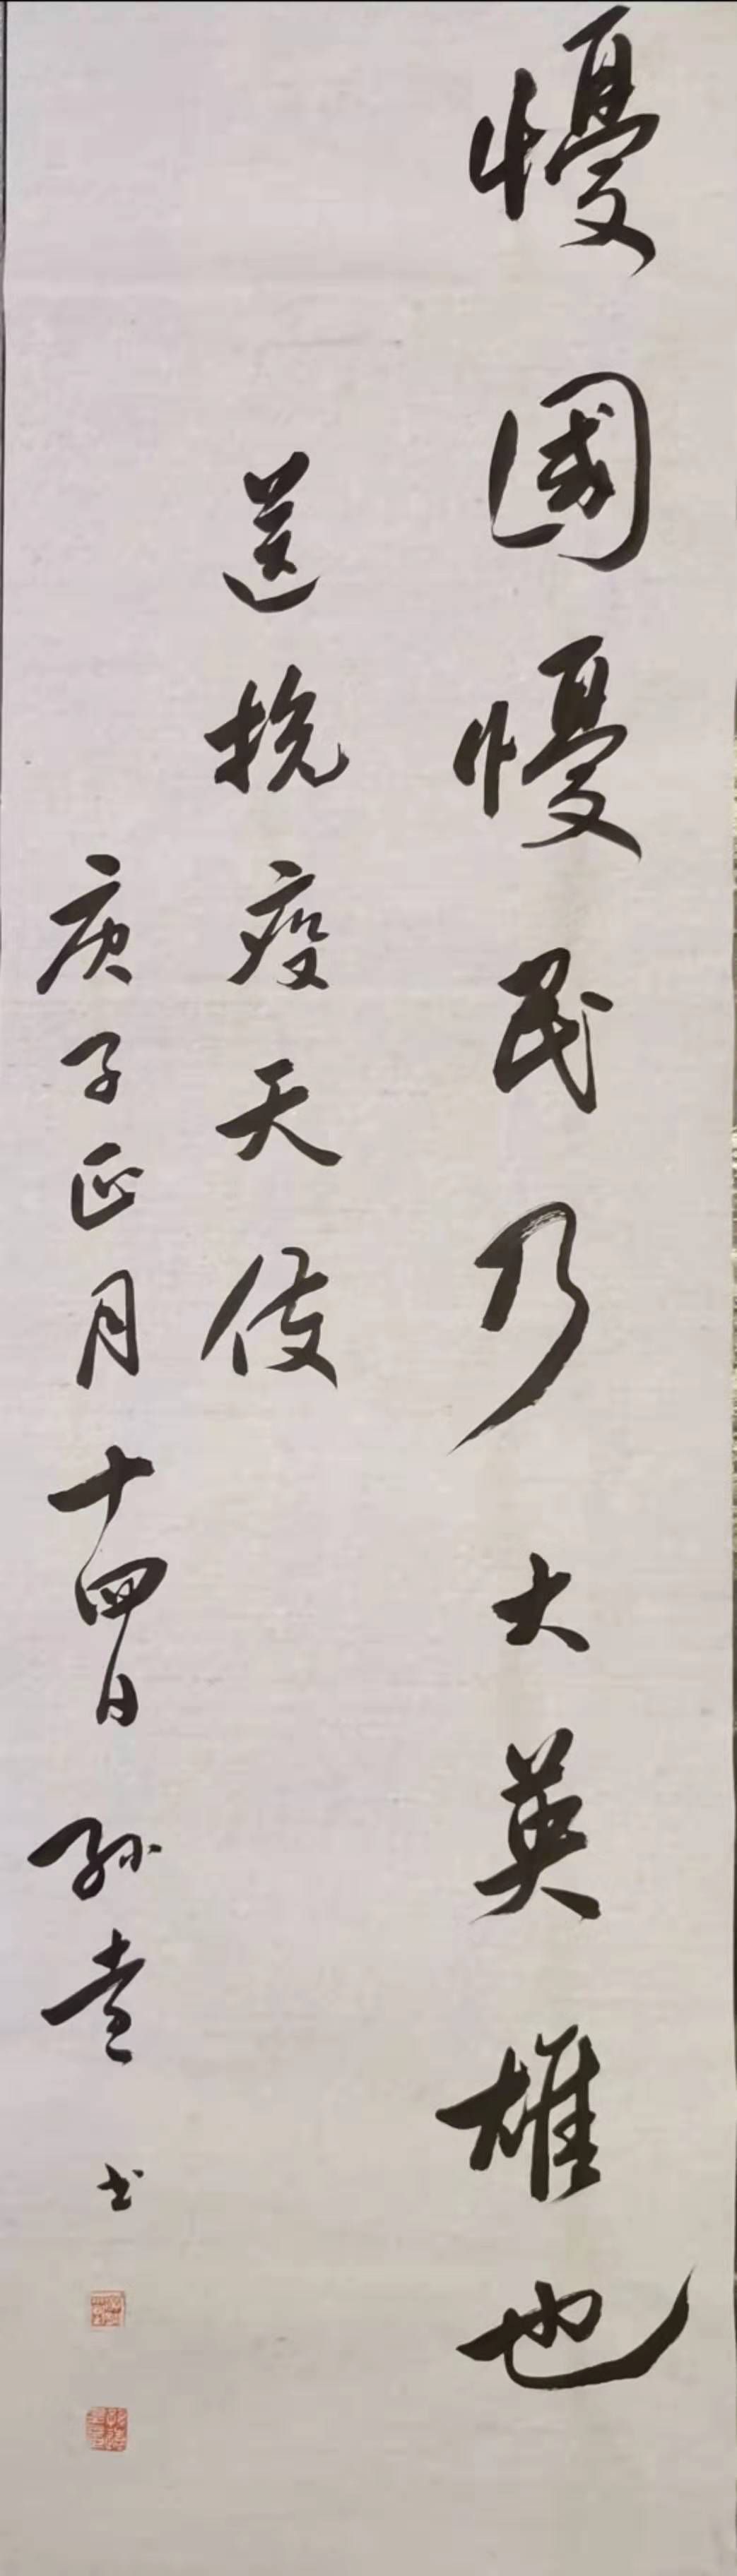 懮國懮民乃大英雄也
送抗疫天使
庚子正月十四日 孙壹 书